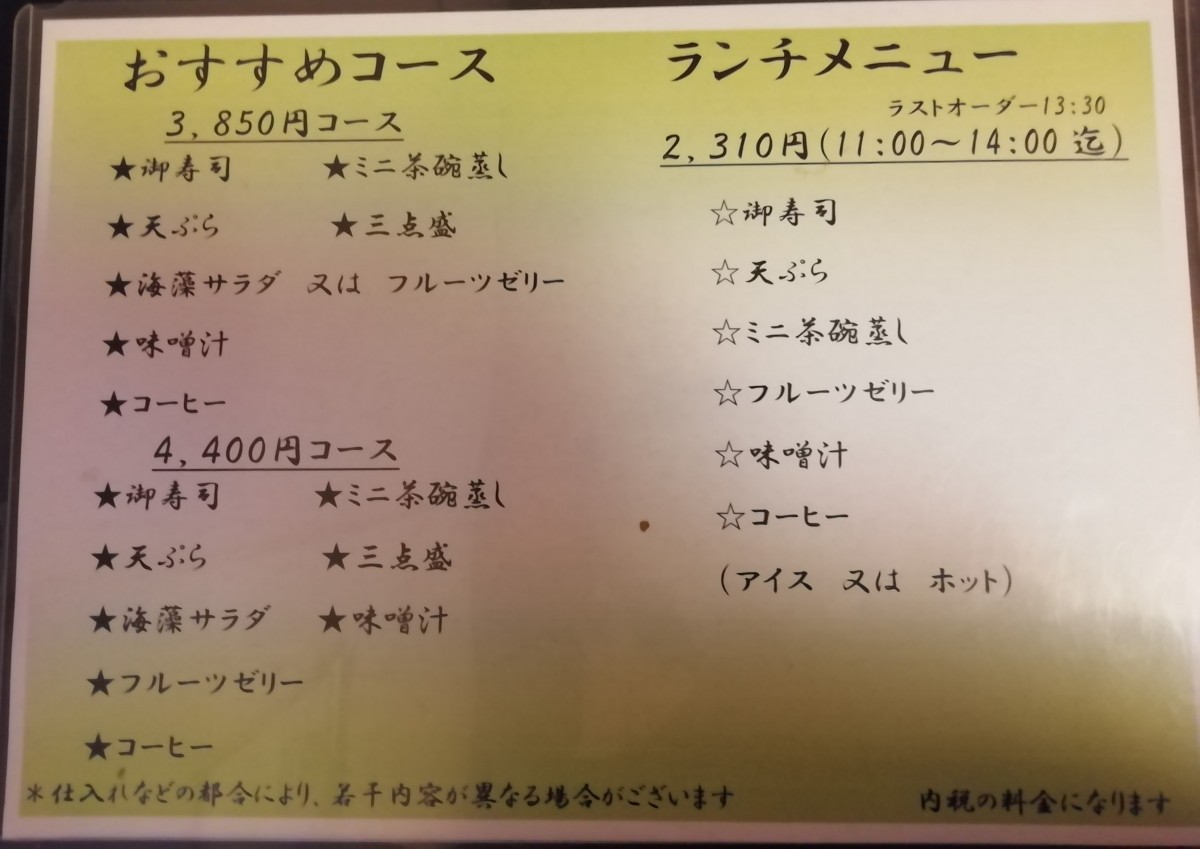 おすすめコース
3,850円コース
★御寿司 ★ミニ茶碗蒸し
★天ぷら ★三点盛
★海藻サラダ 又は フルーツゼリー
★味噌汁
★コーヒー
4,400円コース
★御寿司 ★ミニ茶碗蒸し
★天ぷら ★三点盛
★海藻サラダ ★味噌汁
★フルーツゼリー
★コーヒー
＊仕入れなどの都合により、若干内容が異なる場合がございます
ランチメニュー
ラストオーダー13:30
2,310円(11:00～14:00 迄)
☆御寿司
☆天ぷら
☆ミニ茶碗蒸し
☆フルーツゼリー
☆味噌汁
☆コーヒー
(アイス 又は ホット)
内税の料金になります